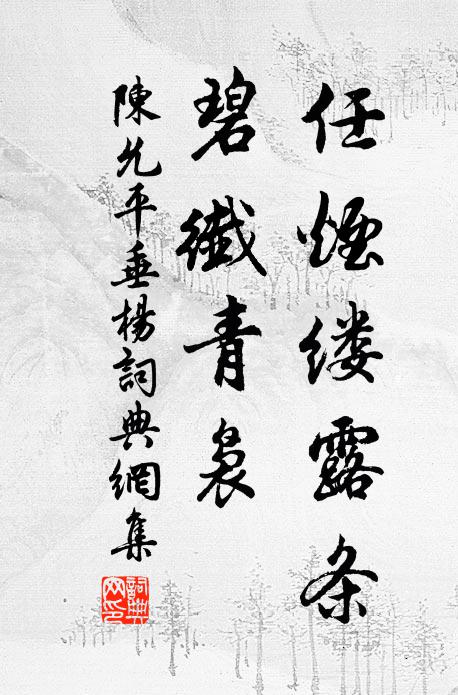 任煙缕露条
碧纖青裊
陳允平垂楊詞典網集
詞典